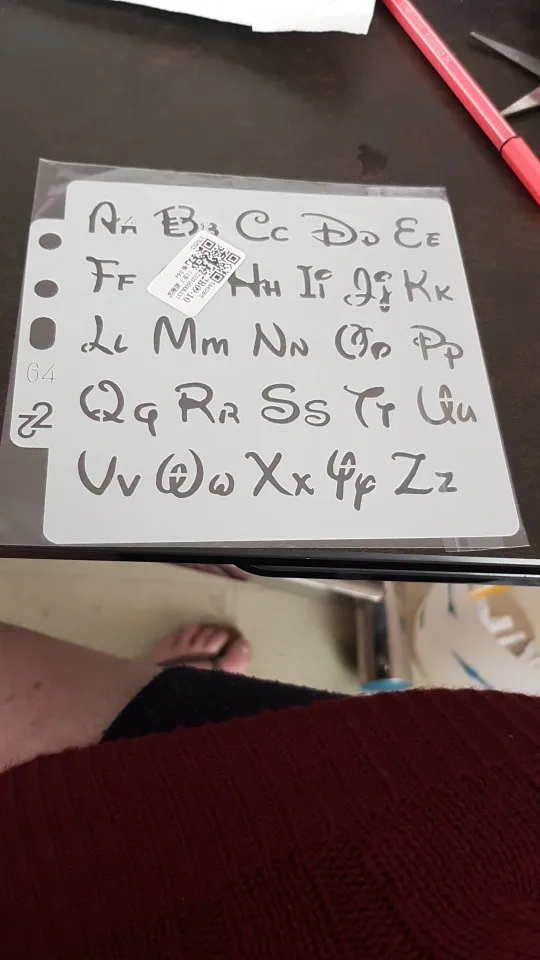 Aa Bb Cc Dd Ee
Ff Hh Ii Jj Kk
Ll Mm Nn Oo Pp
64
Qq Rr Ss Tt Uu
Vv Ww Xx Yy Zz